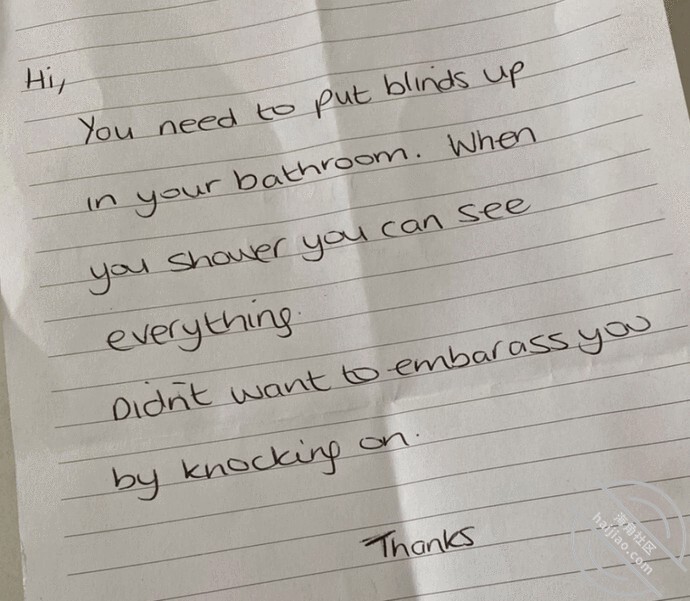 Hi,
You need to put blinds up
in your bathroom. When
you shower you can see
everything.
Didn't want to embarass you
by knocking on.
Thanks
海角社区
haijiao.com